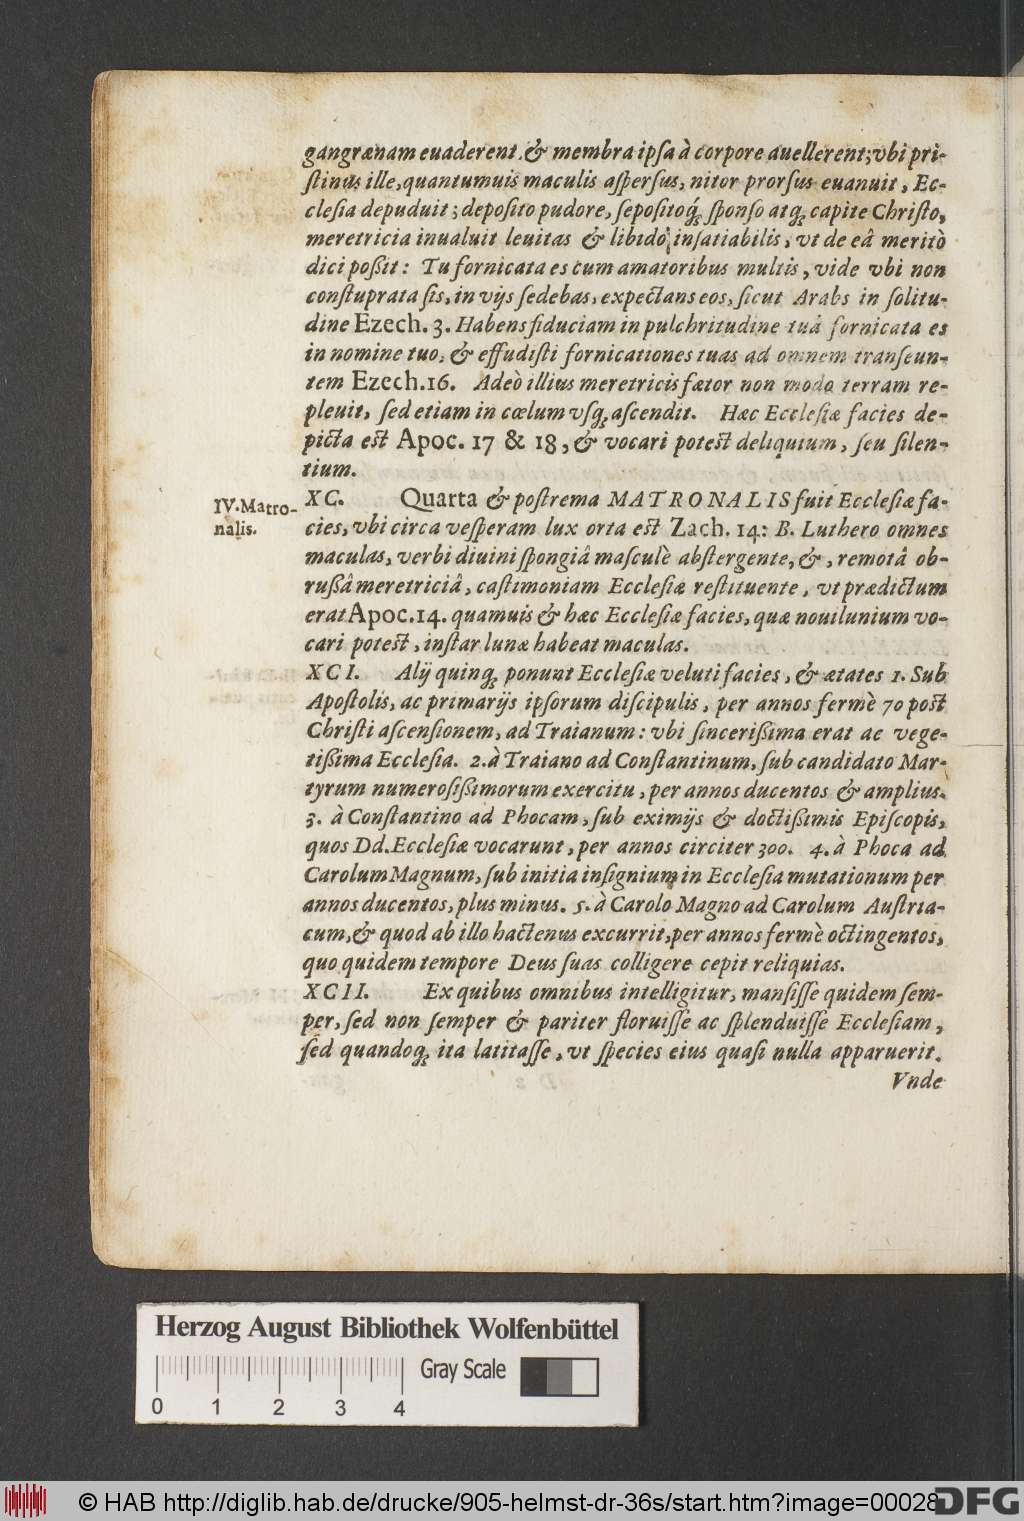 gangrænam euaderent, & membra ipſa à corpore auellerent; vbi pri-
ſtinus ille, quantumuis maculis aſperſus, nitor prorſus euanuit, Ec-
cleſia depuduit; depoſito pudore, ſepoſitoq́; ſponſo atq; capite Chriſto,
meretricia inualuit leuitas & libido inſatiabilis, vt de eâ meritò
dici poßit: Tu fornicata es cum amatoribus multis, vide vbi non
conſtuprata ſis, in vijs ſedebas, expectans eos, ſicut Arabs in ſolitu-
dine Ezech. 3. Habens fiduciam in pulchritudine tuâ fornicata es
in nomine tuo, & effudiſti fornicationes tuas ad omnem tranſeun-
tem Ezech. 16. Adeò illius meretricis fætor non modo terram re-
pleuit, ſed etiam in cœlum vſq; aſcendit. Hæc Eccleſiæ facies de-
picta eſt Apoc. 17 & 18, & vocari poteſt deliquium, ſeu ſilen-
tium.
IV. Matro-
nalis.
XC. Quarta & poſtrema MATRONALIS fuit Eccleſiæ fa-
cies, vbi circa veſperam lux orta eſt Zach. 14: B. Luthero omnes
maculas, verbi diuini ſpongiâ maſculè abſtergente, &, remotâ ob-
rußâ meretriciâ, caſtimoniam Eccleſiæ reſtituente, vt prædictum
erat Apoc. 14. quamuis & hæc Eccleſiæ facies, quæ nouilunium vo-
cari poteſt, inſtar lunæ habeat maculas.
XCI. Alij quinq; ponunt Eccleſiæ veluti facies, & ætates 1. Sub
Apoſtolis, ac primarijs ipſorum diſcipulis, per annos fermè 70 poſt
Chriſti aſcenſionem, ad Traianum: vbi ſincerißima erat ac vege-
tißima Eccleſia. 2. à Traiano ad Conſtantinum, ſub candidato Mar-
tyrum numeroſißimorum exercitu, per annos ducentos & amplius.
3. à Conſtantino ad Phocam, ſub eximijs & doctißimis Epiſcopis,
quos Dd. Eccleſiæ vocarunt, per annos circiter 300. 4. à Phoca ad
Carolum Magnum, ſub initia inſignium in Eccleſia mutationum per
annos ducentos, plus minus. 5. à Carolo Magno ad Carolum Auſtria-
cum, & quod ab illo hactenus excurrit, per annos fermè octingentos,
quo quidem tempore Deus ſuas colligere cepit reliquias.
XCII. Ex quibus omnibus intelligitur, manſiſſe quidem ſem-
per, ſed non ſemper & pariter floruiſſe ac ſplenduiſſe Eccleſiam,
ſed quandoq; ita latitaſſe, vt ſpecies eius quaſi nulla apparuerit.
Vnde
Herzog August Bibliothek Wolfenbüttel
Gray Scale
0 1 2 3 4
© HAB http://diglib.hab.de/drucke/905-helmst-dr-36s/start.htm?image=00028
DFG